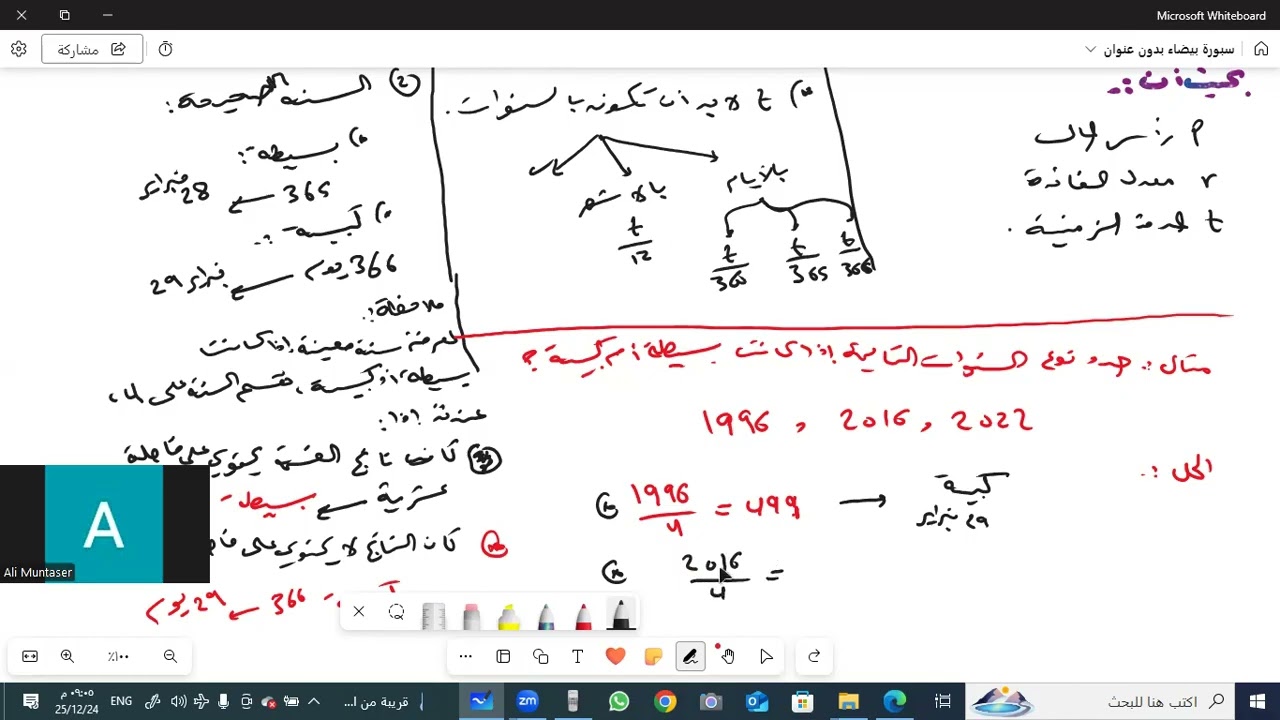 Microsoft Whiteboard
سبورة بيضاء بدون عنوان
مشاركة
بحيث أن:
P رأس المال
r معدل الفائدة
t المدة الزمنية.
t لابد أن تكون بالسنوات.
بالأيام
بالأشهر
t/12
t/360
t/365
t/366
② السنة الصحيحة:
بسيطة:
365 ← 28 فبراير
كبيسة:
366 يوم ← فبراير 29
ملاحظة:
لمعرفة سنة معينة إذا كانت
بسيطة أو كبيسة، نقسم السنة على 4،
عندئذ إذا:
كانت ناتج القسمة يحتوي على فاصلة
عشرية ← بسيطة
كان الناتج لا يحتوي على
366 ← 29 يوم
مثال: حدد نوع السنوات التالية إذا كانت بسيطة أم كبيسة؟
1996 , 2016 , 2022
الحل:
1996/4 = 499 → كبيسة
29 فبراير
2016/4 =
A
Ali Muntaser
٪١٠٠
اكتب هنا للبحث
قريبة من ا...
ENG
٠٩:٠٥ م
25/12/24